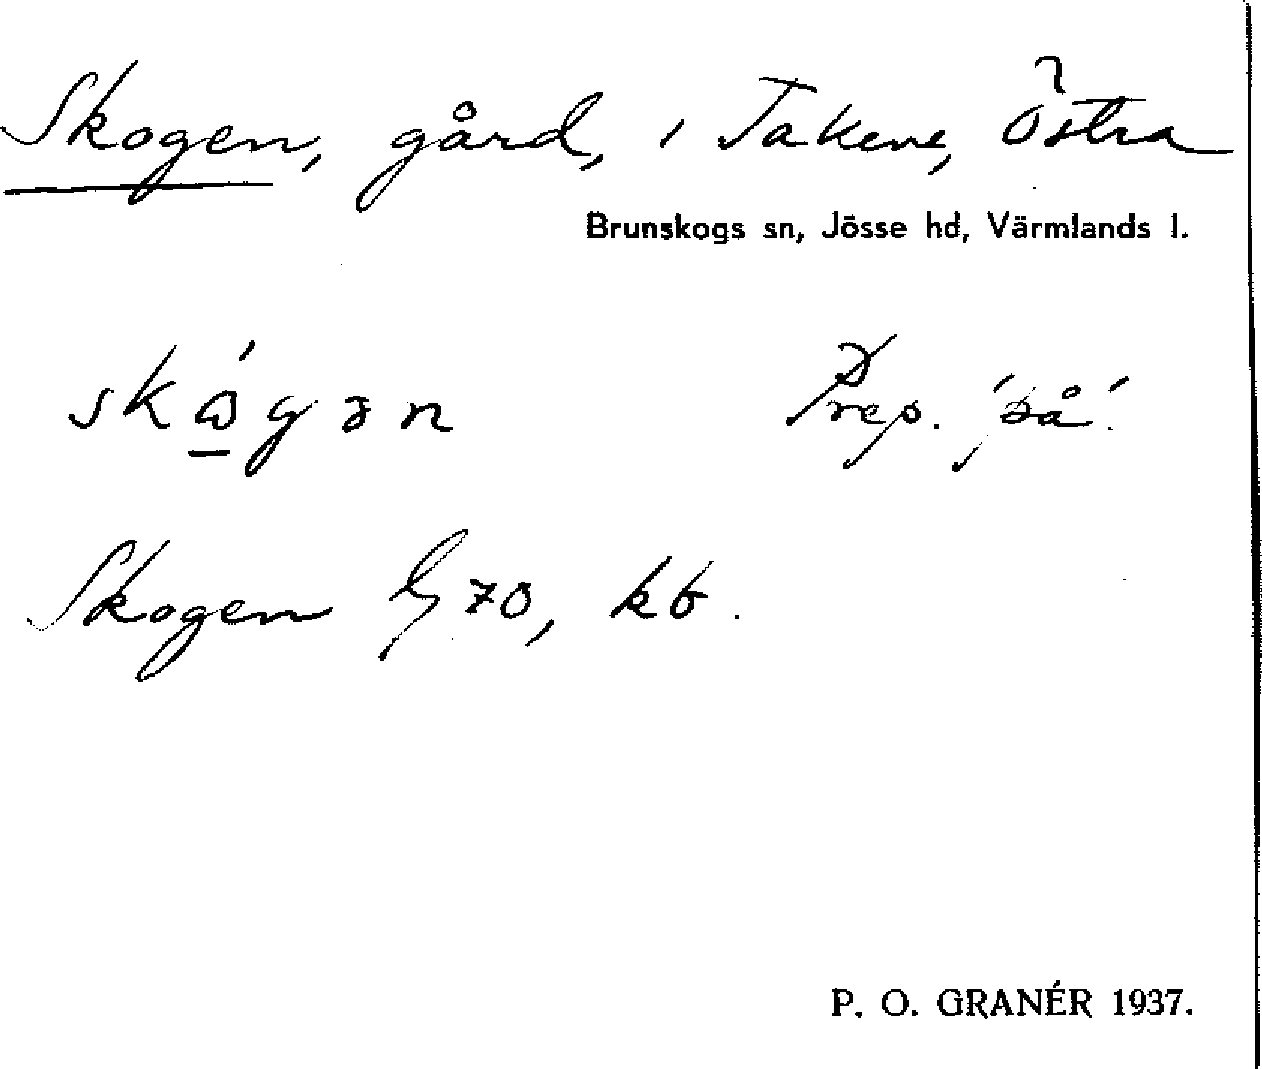 Skogen, gård, i Takene, Östra
Brunskogs sn, Jösse hd, Värmlands l.
skώ̲gən Prep. 'på'.
Skogen G 70, kb.
P. O. GRANÉR 1937.